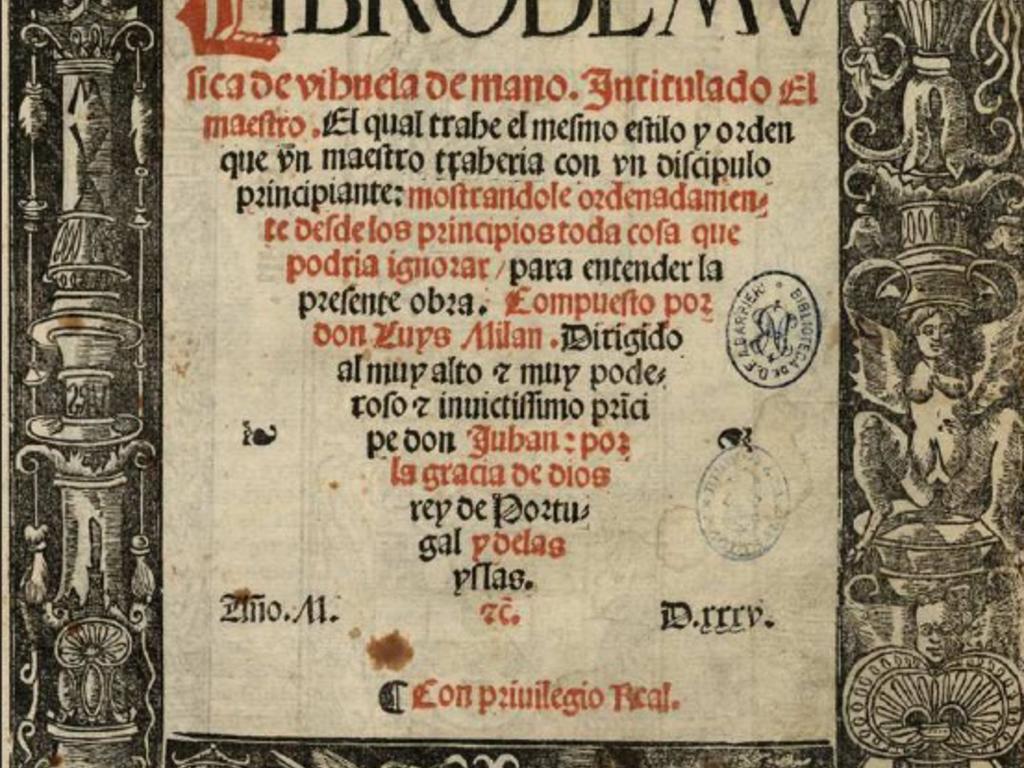 LIBRO DE MV
sica de vihuela de mano. Intitulado El
maestro. El qual trahe el mesmo estilo y orden
que vn maestro traheria con vn discipulo
principiante: mostrandole ordenadamen-
te desde los principios toda cosa que
podria ignorar / para entender la
presente obra. Compuesto por
don Luys Milan. Dirigido
al muy alto ⁊ muy pode-
roso ⁊ inuictissimo prĩci
pe don Juhan: por
la gracia de dios
rey de Portu-
gal y delas
yslas.
Año. M. ⁊c̃. D.xxxv.
¶ Con priuilegio Real.
BIBLIOTECA DE D. F. A. BARBIERI